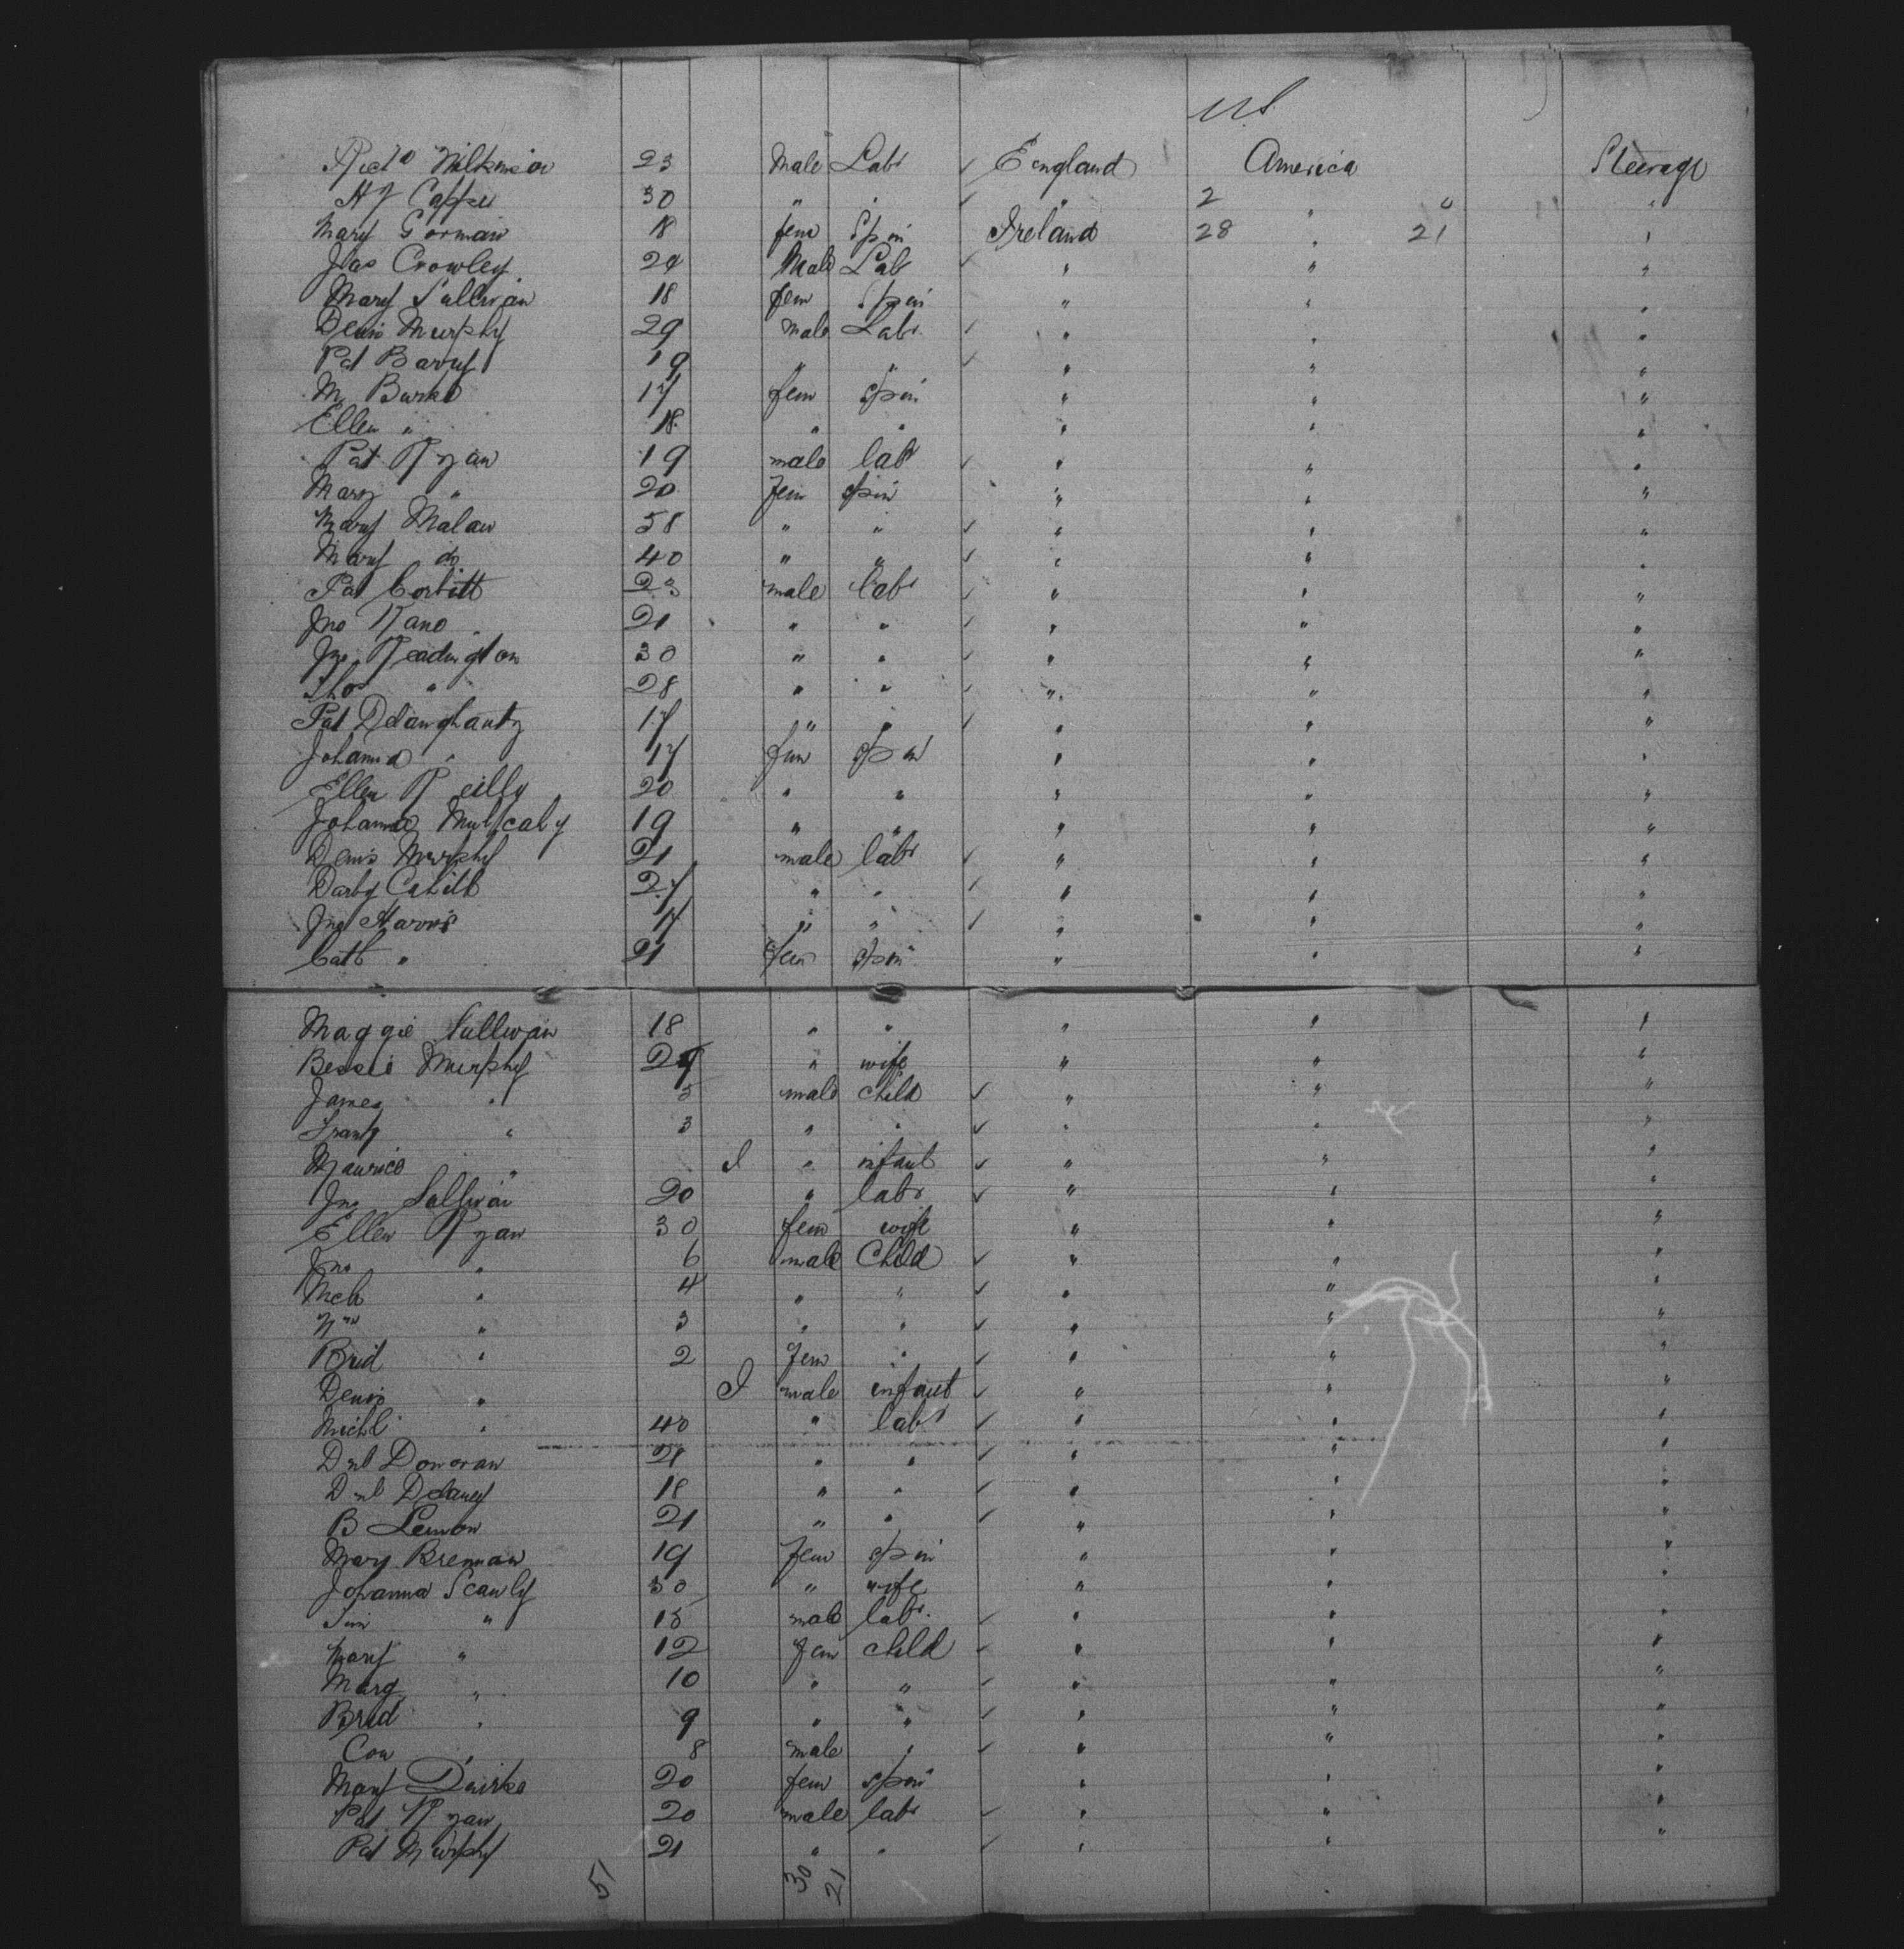 US
Richd Wilkinson 23 Male Labr ✓ England America Steerage
Hy Capper 30 " " ✓ " 2 " 0 "
Mary Gorman 18 fem Spin Ireland 28 " 21 "
Jas Crowley 24 Male Lab ✓ " " "
Mary Sullivan 18 fem Spin " " "
Denis Murphy 29 male Labr ✓ " " "
Pat Barry 19 " " ✓ " " "
M Burke 17 fem Spin " " "
Ellen " 18 " " " " "
Pat Ryan 19 male labr ✓ " " "
Mary " 20 fem spin " " "
Mary Malaw 58 " " ✓ " " "
Mary do 40 " " ✓ " " "
Pat Corbitt 23 male labr ✓ " " "
Jno Kane 21 " " ✓ " " "
Jno Readington 30 " " ✓ " " "
Thos " 28 " " ✓ " " "
Pat Delanghanty 17 " " ✓ " " "
Johanna " 17 fem spin " " "
Ellen Reilly 20 " " " " "
Johanna Mulcahy 19 " " " " "
Denis Murphy 21 male labr ✓ " " "
Darby Cahill 27 " " ✓ " " "
Jno Harris 17 " " ✓ " " "
Cath " 21 fem spin " " "
Maggie Sullivan 18 " " " " "
Bessie Murphy 29 " wife " " "
James " 5 male child ✓ " " "
Frank " 3 " " ✓ " " "
Maurice " I " infant ✓ " " "
Jno Sullivan 20 " labr ✓ " " "
Ellen Ryan 30 fem wife " " "
Jno " 6 male Child ✓ " " "
Mch " 4 " " ✓ " " "
Wm " 3 " " ✓ " " "
Brid " 2 fem " ✓ " " "
Denis " I male infant ✓ " " "
Michl " 40 " labr ✓ " " "
Dnl Donovan 21 " " ✓ " " "
Dnl Delaney 18 " " ✓ " " "
B Lennon 21 " " ✓ " " "
Mary Brennan 19 fem spin " " "
Johanna Scanly 30 " wife " " "
Tim " 15 male labr ✓ " " "
Mary " 12 fem child ✓ " " "
Marg " 10 " " ✓ " " "
Brid " 9 " " ✓ " " "
Con " 8 male " ✓ " " "
Mary 20 fem spin " " "
Pat Ryan 20 male labr ✓ " " "
Pat Murphy 21 " " ✓ " " "
51 30 21